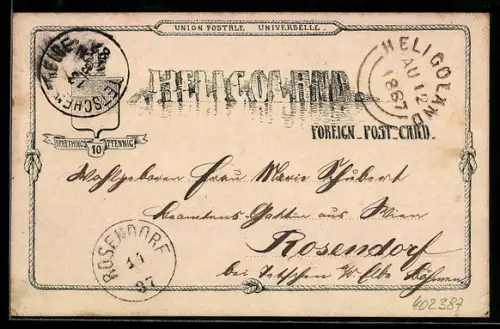 UNION POSTALE UNIVERSELLE.
HELIGOLAND
FOREIGN POST CARD.
HELIGOLAND
AU 12
1887
TETSCHEN
FARTHINGS 10 PFENNIG
Wohlgeboren Frau Marie Schubert
Beamtens-Gattin aus Wien
Rosendorf
bei Tetschen a/d Elbe Böhmen
ROSENDORF
87
402387